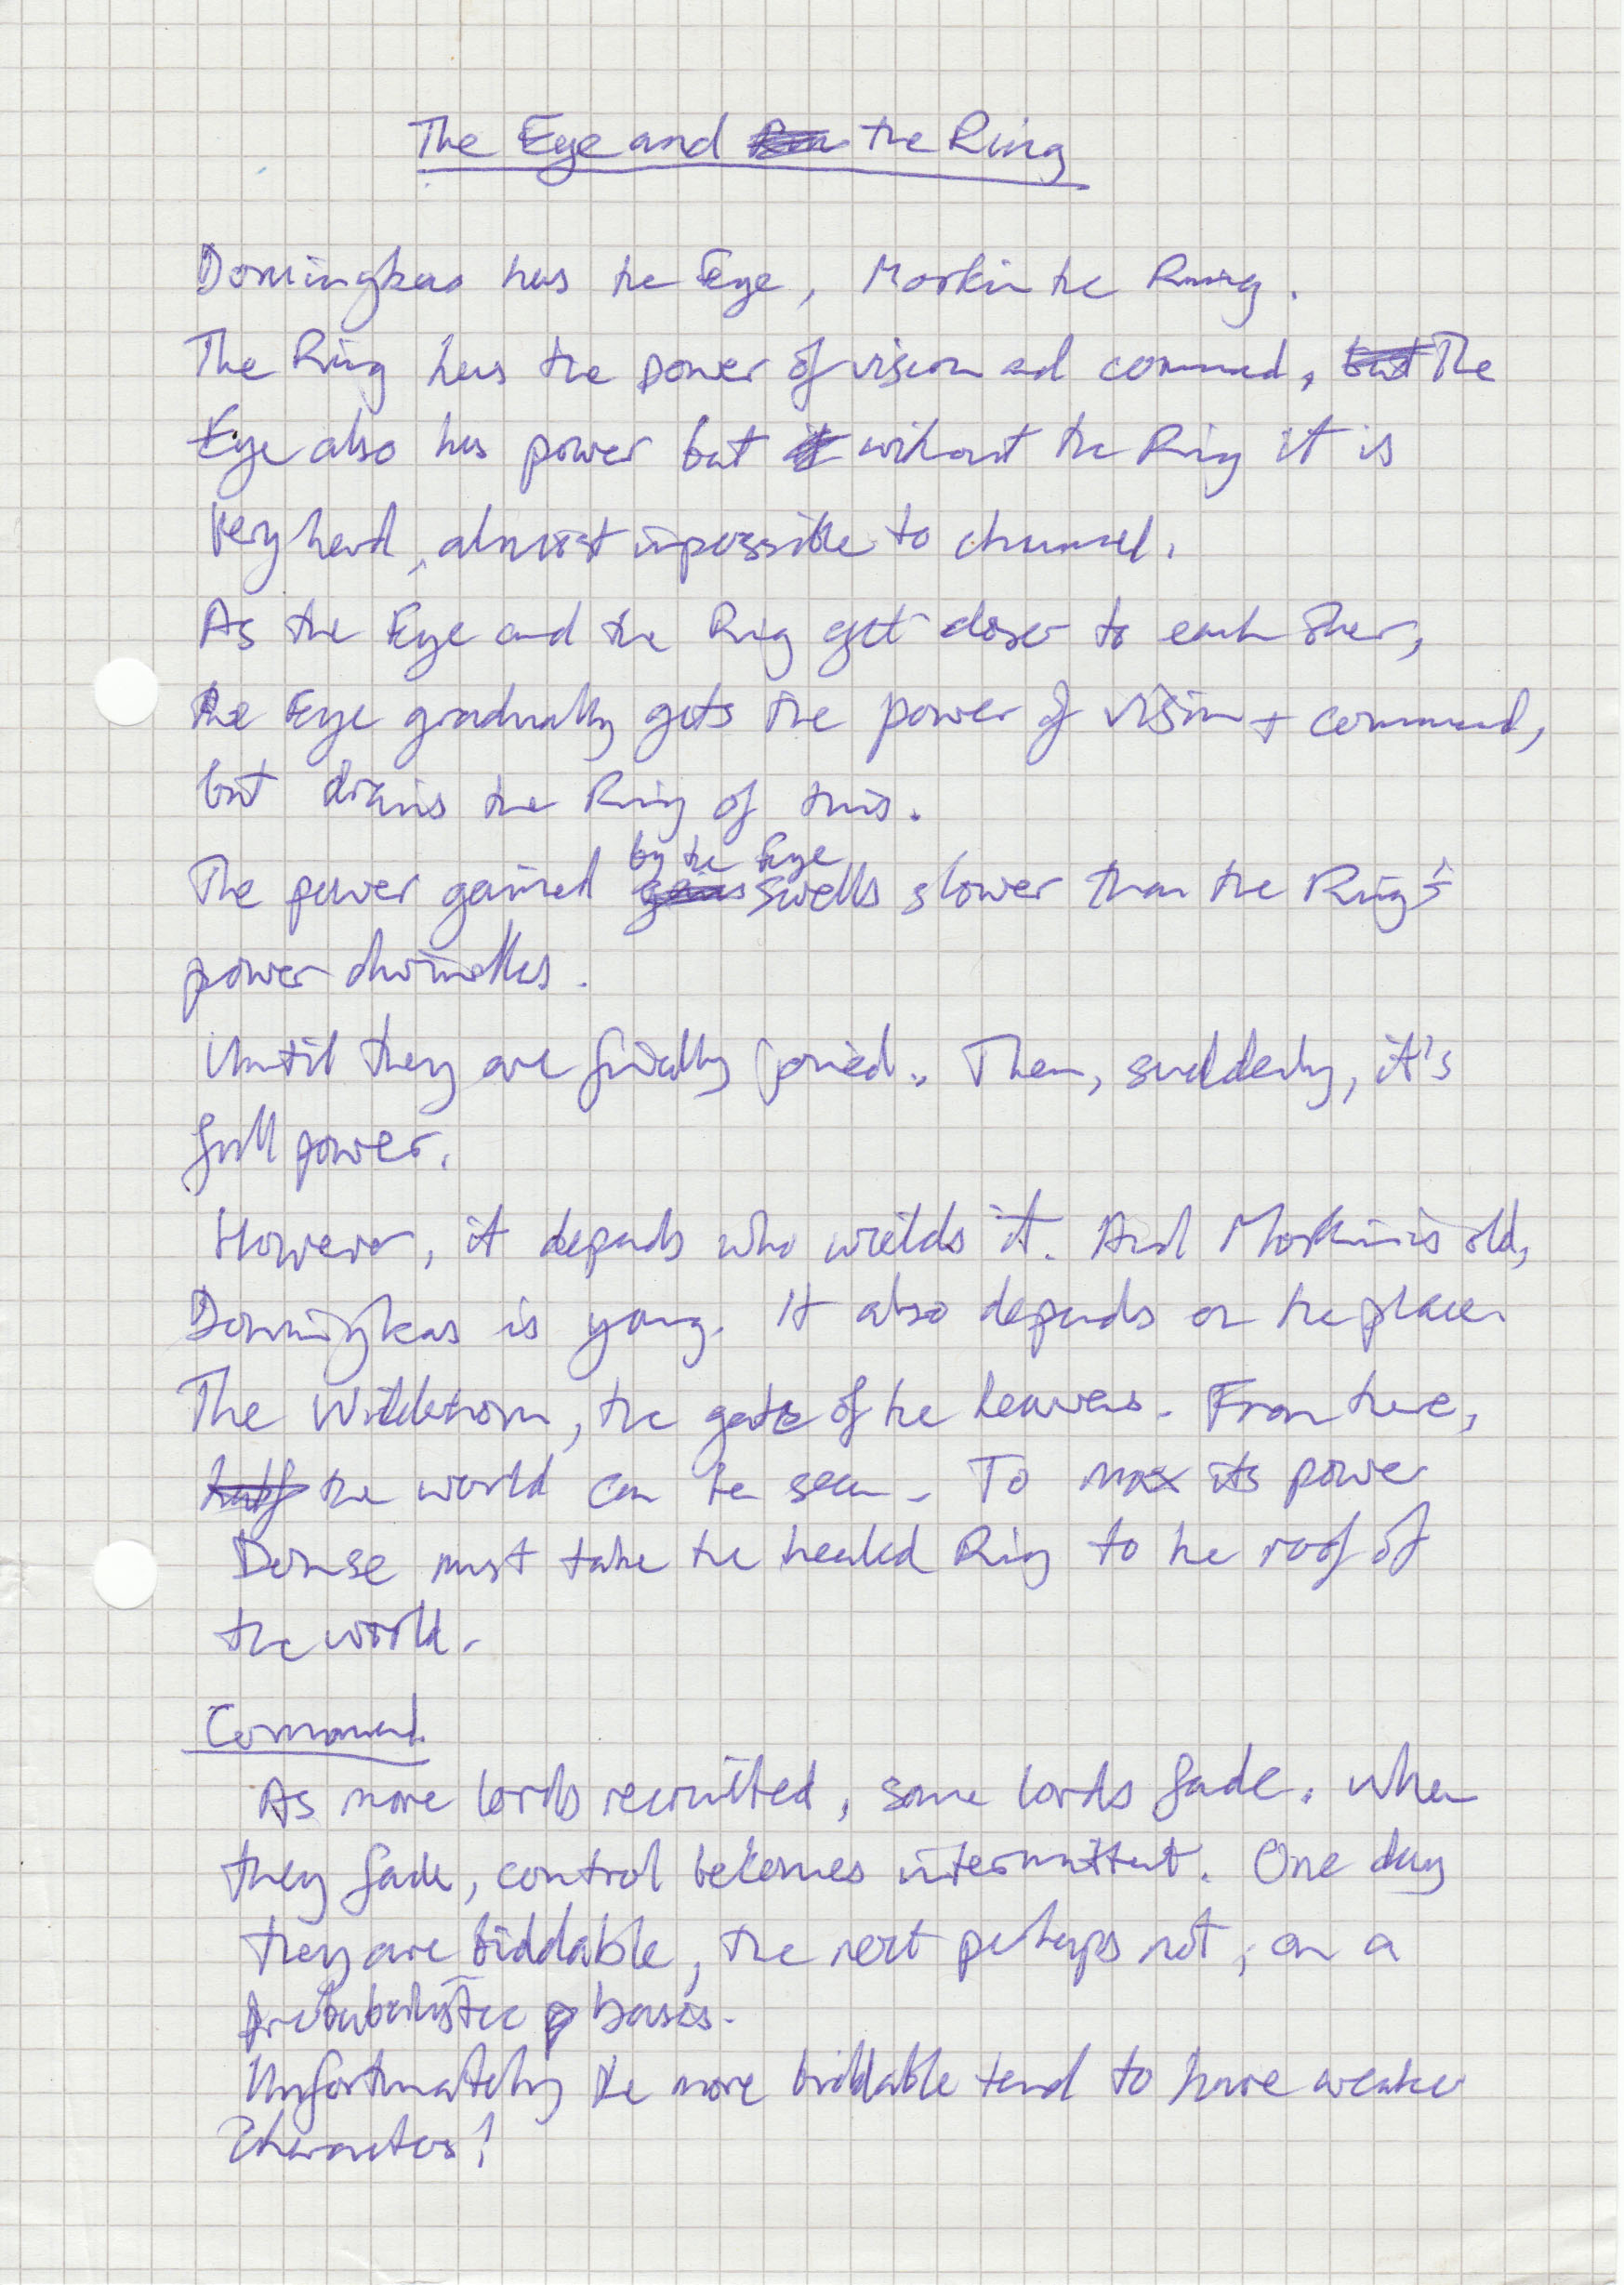 The Eye and the Ring
Domingkas has the Eye, Morkin the Ring.
The Ring has the power of vision and command, but The
Eye also has power but it without the Ring it is
very hard, almost impossible to channel.
As the Eye and the Ring get closer to each other,
the Eye gradually gets the power of vision + command,
but drains the Ring of this.
by the Eye
The power gained gains swells slower than the Ring's
power dwindles.
Until they are finally joined. Then, suddenly, it's
full power.
However, it depends who wields it. And Morkin is old,
Domingkas is young. It also depends on the place.
The the gate of the heavens. From there,
half the world can be seen. To max its power
must take the healed Ring to the roof of
the world.
Command
As more lords recruited, some lords fade. When
they fade, control becomes intermittent. One day
they are biddable, the next perhaps not, on a
probabilistic basis.
Unfortunately the more biddable tend to have weaker
characters!